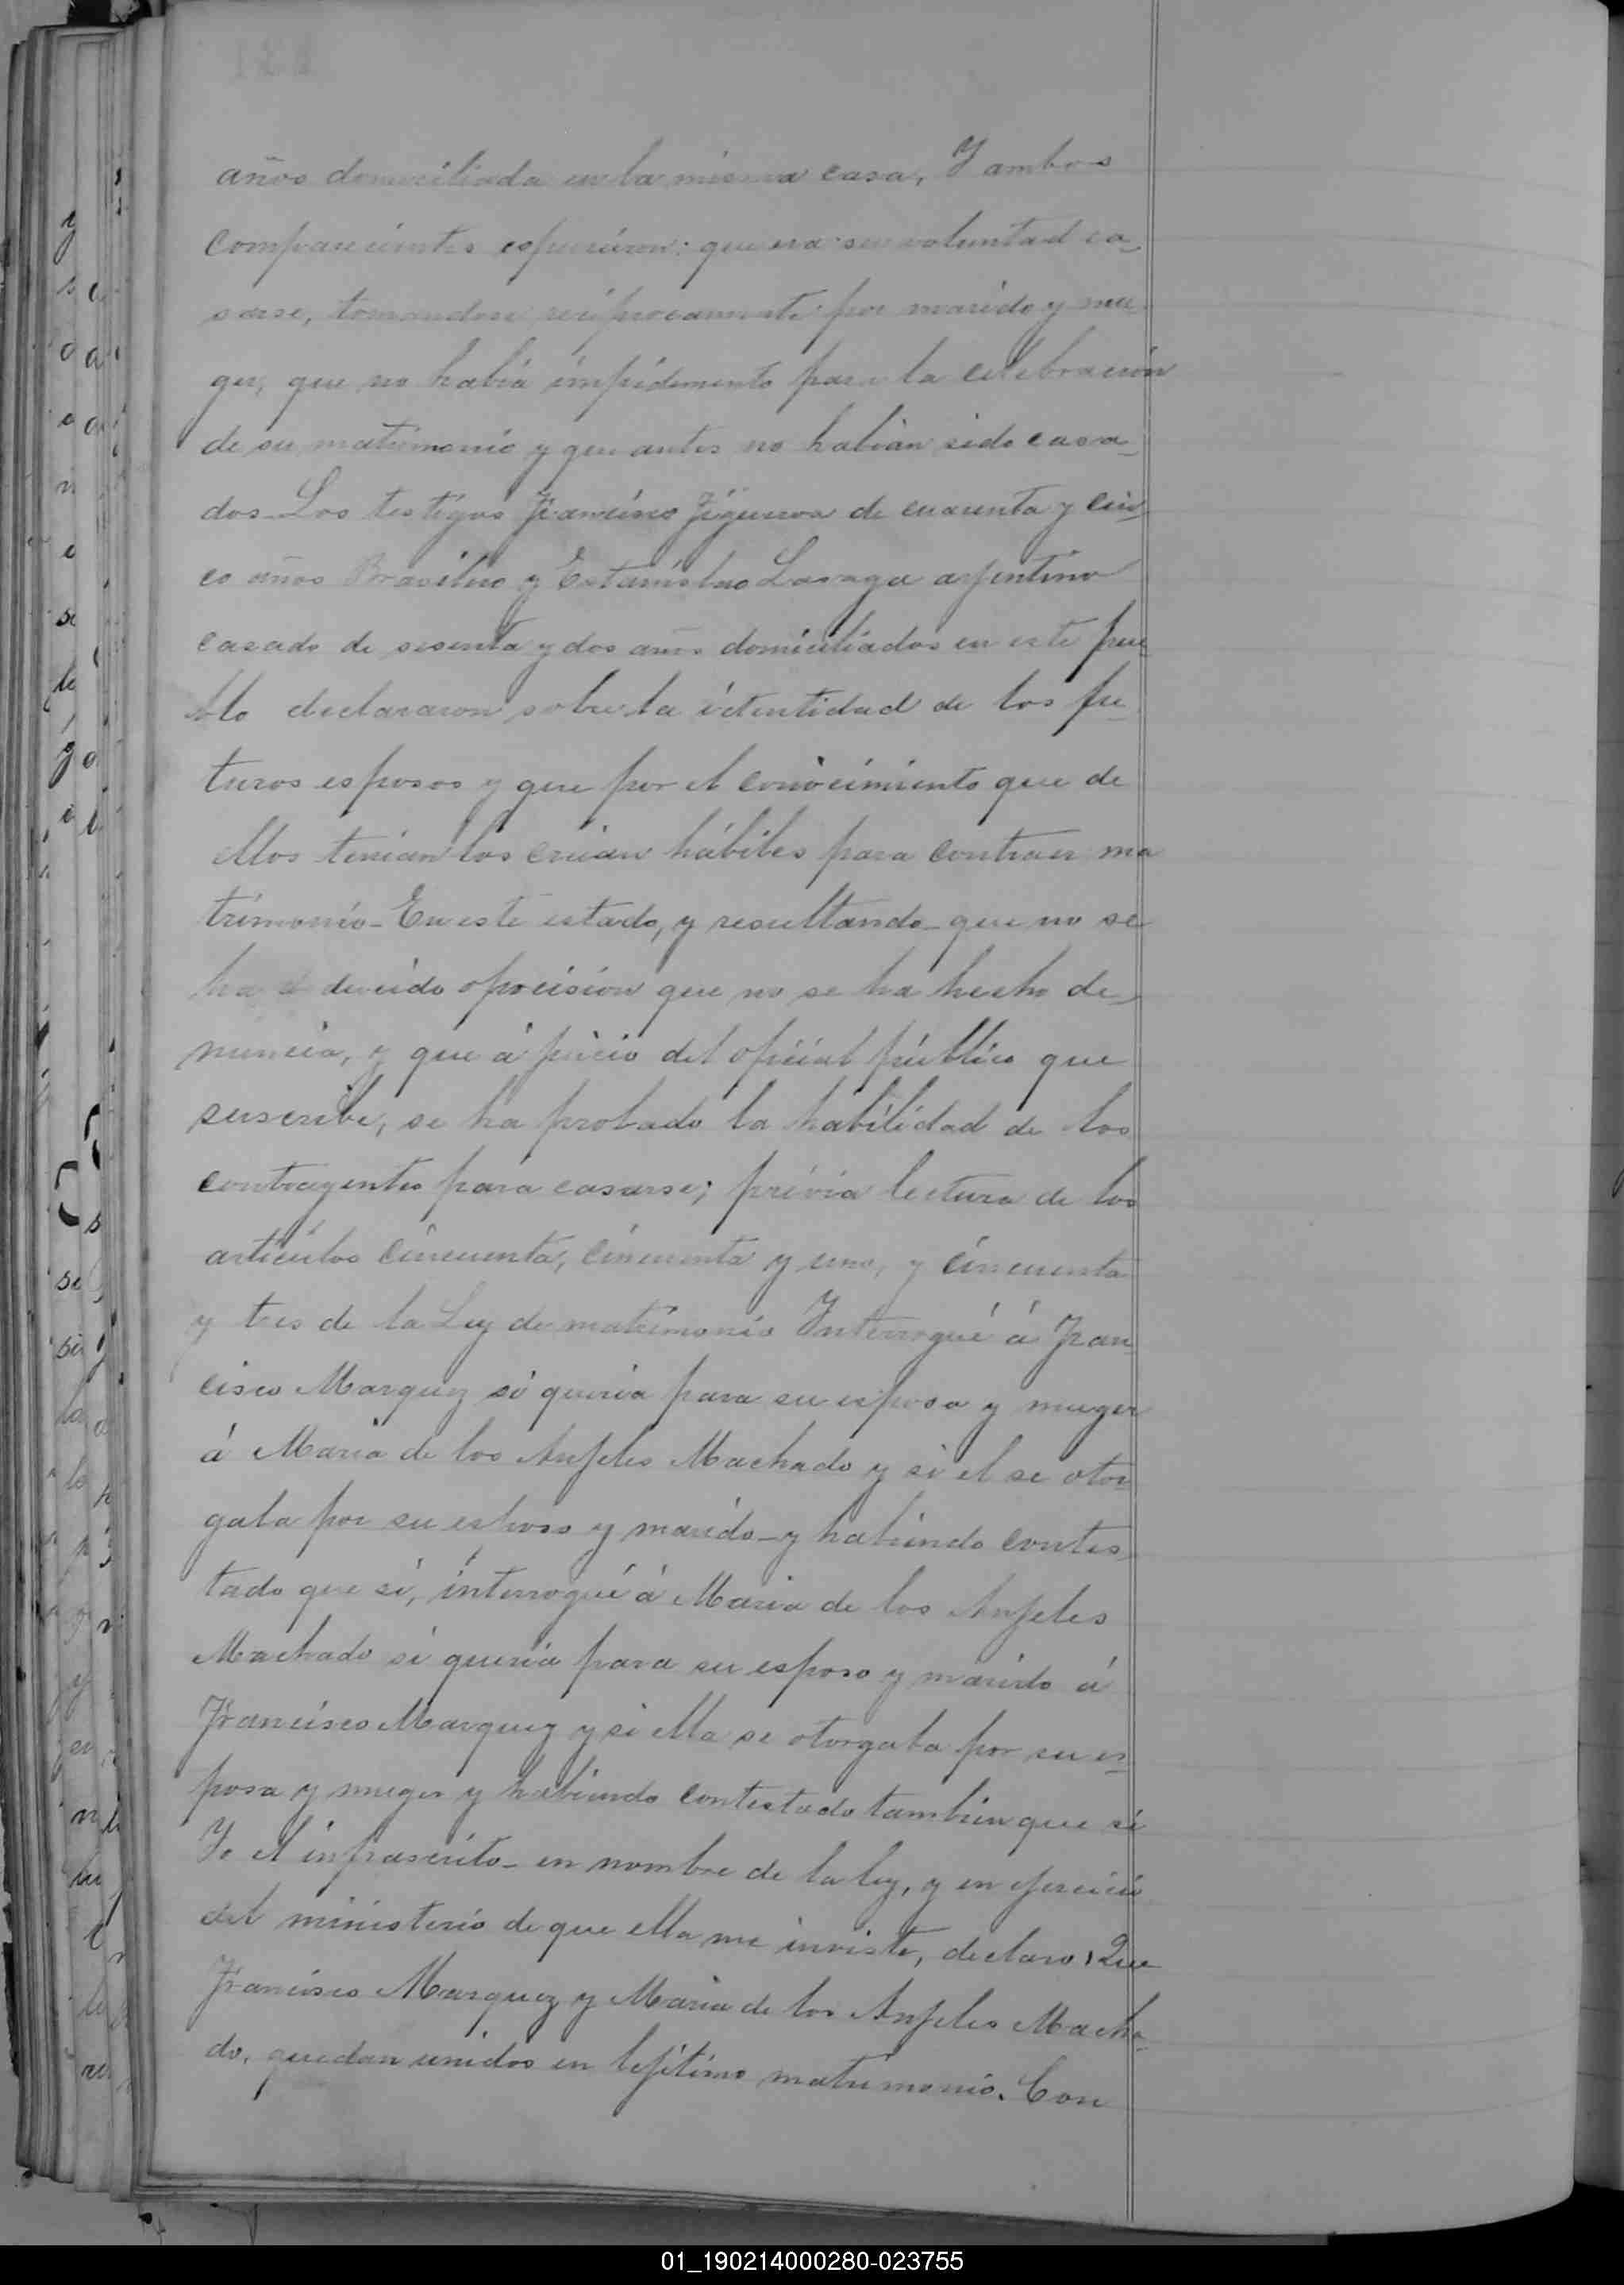 años domiciliada en la misma casa, Y ambos
comparecientes espusieron: que era su voluntad ca-
sarse, tomandose reciprocamente por marido y mu-
ger, que no habia impedimento para la celebración
de su matrimonio y que antes no habian sido casa-
dos_Los testigos Francisco Figueroa de cuarenta y cin-
co años Brasilero y Estanislao Lasaga arjentino
casado de sesenta y dos años domiciliados en este pue
blo declararon sobre la identidad de los fu-
turos esposos y que por el conocimiento que de
ellos tenian los creian hábiles para contraer ma
trimonio_En este estado, y resultando_que no se
ha deducido oposicion que no se ha hecho de-
nuncia, y que á juicio del oficial público que
suscribe, se ha probado la habilidad de los
contrayentes para casarse; prévia lectura de los
articulos cincuenta, cincuenta y uno, y cincuenta
y tres de la Ley de matrimonio Interrogué á Fran
cisco Marquez si queria para su esposa y muger
á Maria de los Anjeles Machado y si el se otor
gaba por su esposo y marido_y habiendo contes-
tado que si, interrogué á Maria de los Anjeles
Machado si queria para su esposo y marido á
Francisco Marquez y si ella se otorgaba por su es-
posa y muger y habiendo contestado tambien que si
Yo el infrascrito_en nombre de la ley, y en ejercicio
del ministerio de que ella me inviste, declaro: Que
Francisco Marquez y Maria de los Anjeles Macha-
do, quedan unidos en lejitimo matrimonio. Con
01_190214000280-023755